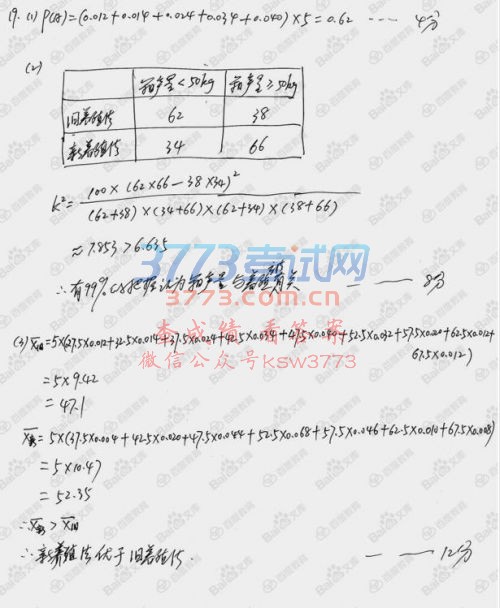 19. (1) P(A)=(0.012+0.014+0.024+0.034+0.040)×5=0.62 ---- 4分
(2)
箱产量<50kg 箱产量≥50kg
旧养殖法 62 38
新养殖法 34 66
K²= 100×(62×66-38×34)²
(62+38)×(34+66)×(62+34)×(38+66)
≈7.853>6.635
∴有99%以上把握认为箱产量与养殖法有关 ---- 8分
3773考试网
www.3773.com.cn
查成绩 看答案
微信公众号ksw3773
(3) x̄旧=5×(27.5×0.012+32.5×0.014+37.5×0.024+42.5×0.034+47.5×0.040+52.5×0.032+57.5×0.020+62.5×0.012+
67.5×0.012)
=5×9.42
=47.1
x̄新=5×(37.5×0.004+42.5×0.020+47.5×0.044+52.5×0.068+57.5×0.046+62.5×0.010+67.5×0.008)
=5×10.47
=52.35
∴x̄新>x̄旧
∴新养殖法优于旧养殖法. ---- 12分
Bai百度文库
百度教育